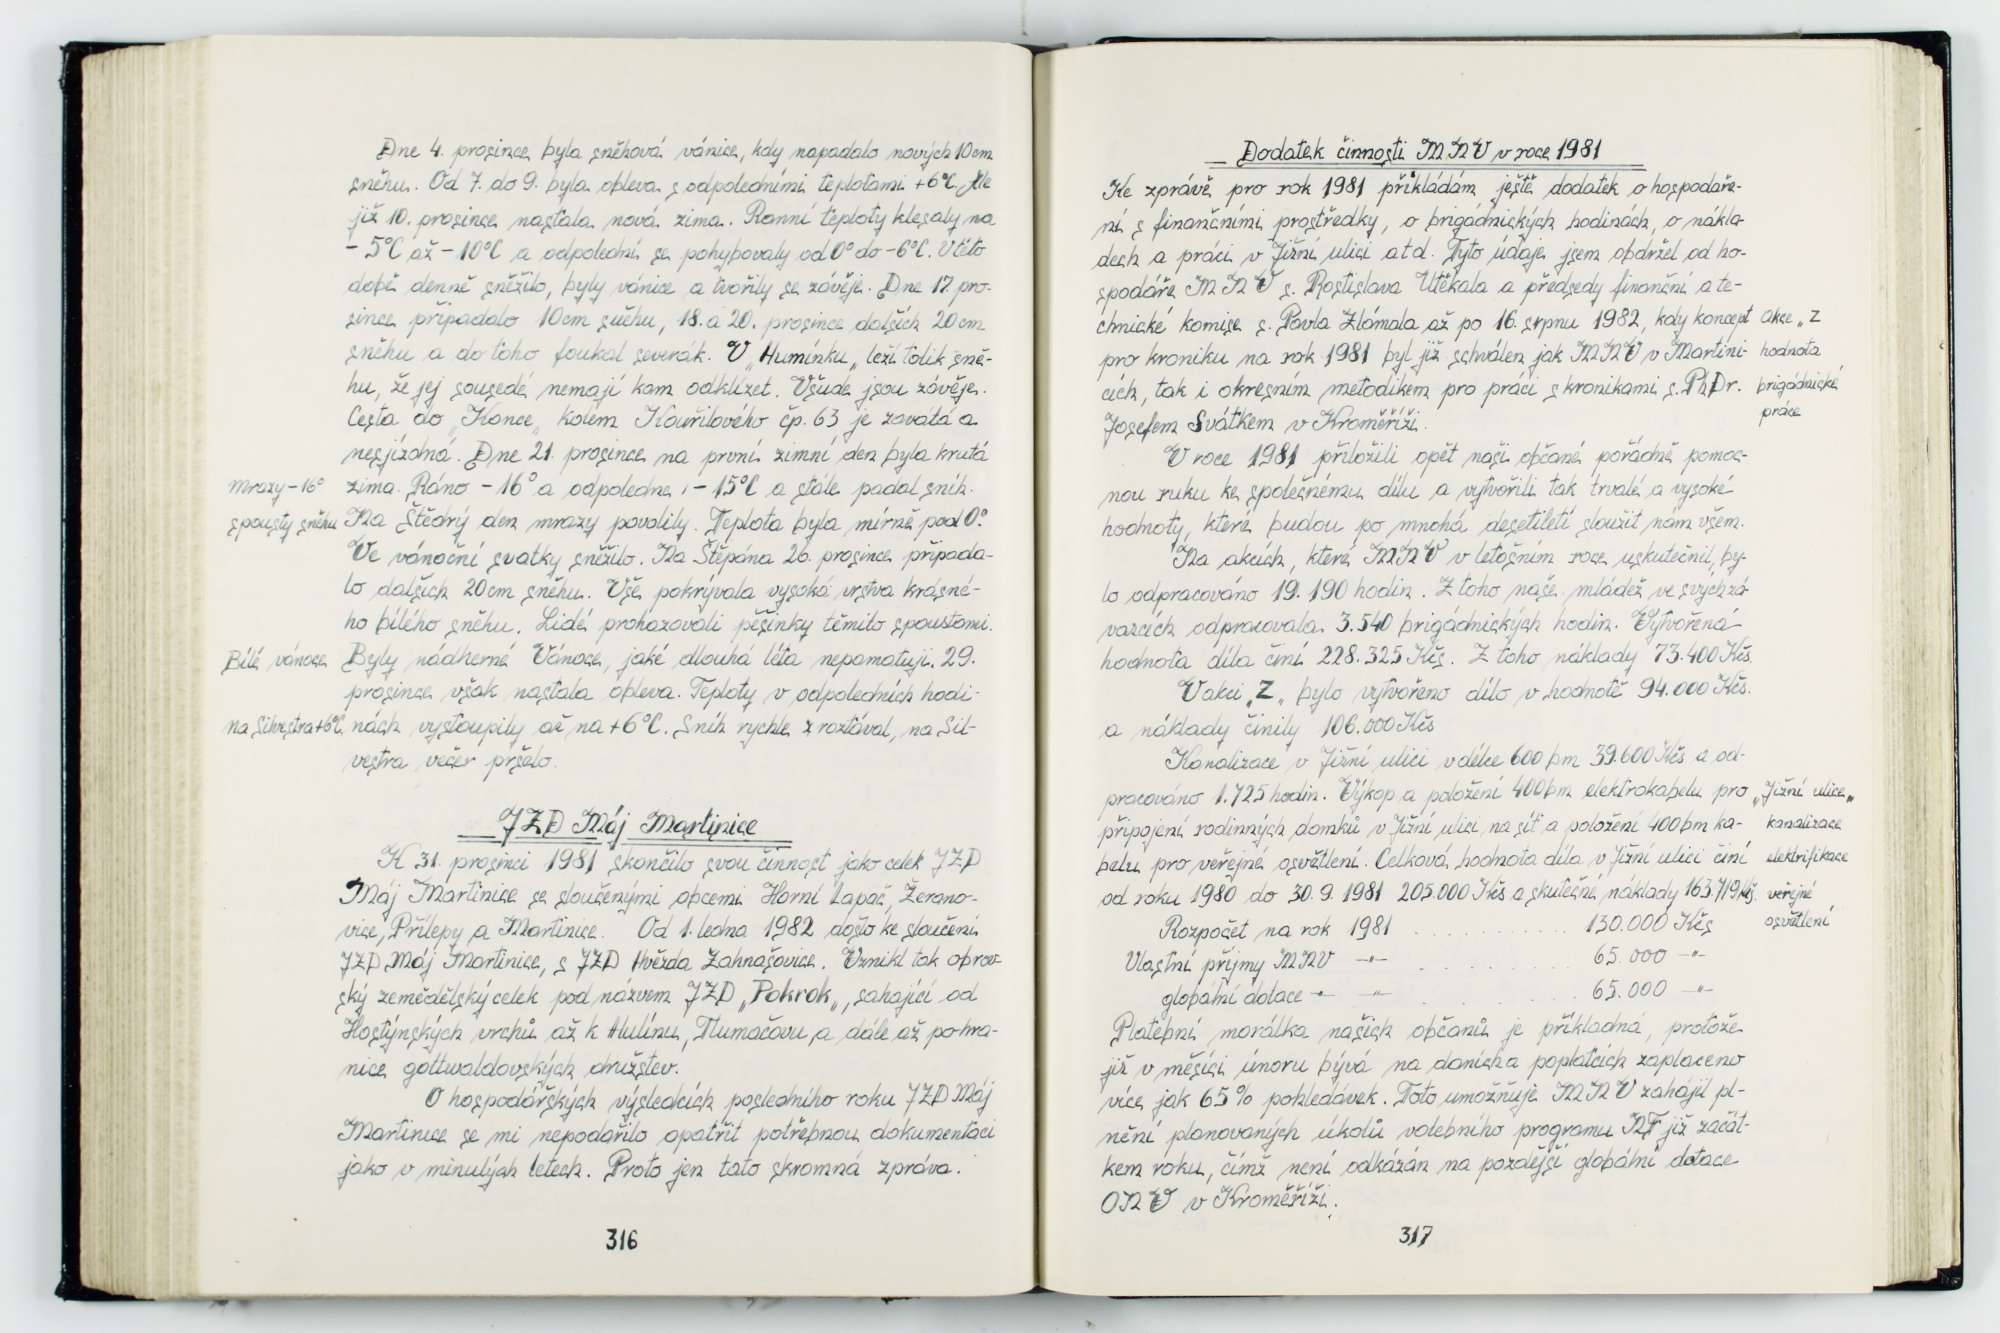 Dne 4. prosince byla sněhová vánice, kdy napadalo nových 10 cm
sněhu. Od 7. do 9. byla obleva s odpoledními teplotami +6°C. Ale
již 10. prosince nastala nová zima. Ranní teploty klesaly na
-5°C až -10°C a odpolední se pohybovaly od 0° do -6°C. V této
době denně sněžilo, byly vánice a tvořily se závěje. Dne 17. pro-
since připadalo 10cm sněhu, 18. a 20. prosince dalších 20cm
sněhu a do toho foukal severák. V „Humínku„ leží tolik sně-
hu, že jej sousedé nemají kam odklízet. Všude jsou závěje.
Cesta do „Konce„ kolem Kouřilového čp. 63 je zavátá a
nesjízdná. Dne 21. prosince na první zimní den byla krutá
Mrazy -16° zima. Ráno -16° a odpoledne -15°C a stále padal sníh.
spousty sněhu Na Štědrý den mrazy povolily. Teplota byla mírně pod 0°.
Ve vánoční svátky sněžilo. Na Štěpána 26. prosince připada-
lo dalších 20cm sněhu. Vše pokrývala vysoká vrstva krásné-
ho bílého sněhu. Lidé prohazovali pěšinky těmito spoustami.
Bílé vánoce Byly nádherné Vánoce, jaké dlouhá léta nepamatuji. 29.
prosince však nastala obleva. Teploty v odpoledních hodi-
na Silvestra +6°C nách vystoupily až na +6°C. Sníh rychle z roztával, na Sil-
vestra večer pršelo.
JZD Máj Martinice
K 31. prosinci 1981 skončilo svou činnost jako celek JZD
Máj Martinice se sloučenými obcemi Horní Lapač, Žerano-
vice, Přílepy a Martinice. Od 1. ledna 1982 došlo ke sloučení
JZD Máj Martinice, s JZD Hvězda Zahnašovice. Vznikl tak obrov-
ský zemědělský celek pod názvem JZD „Pokrok„, sahající od
Hostýnských vrchů až k Hulínu, Tlumačovu a dále až po hra-
nice gottwaldovských družstev.
O hospodářských výsledcích posledního roku JZD Máj
Martinice se mi nepodařilo opatřit potřebnou dokumentaci
jako v minulých letech. Proto jen tato skromná zpráva.
316
Dodatek činnosti MNV v roce 1981
Ke zprávě pro rok 1981 přikládám ještě dodatek o hospodaře-
ní s finančními prostředky, o brigádnických hodinách, o nákla-
dech a práci v Jižní ulici atd. Tyto údaje jsem obdržel od ho-
spodáře MNV s. Rostislava Utěkala a předsedy finanční a te-
chnické komise s. Pavla Zlámala až po 16. srpnu 1982, kdy koncept akce „Z
pro kroniku na rok 1981 byl již schválen jak MNV v Martini- hodnota
cích, tak i okresním metodikem pro práci s kronikami s. PhDr. brigádnické
Josefem Svátkem v Kroměříži. práce
V roce 1981 přiložili opět naši občané pořádně pomoc-
nou ruku ke společnému dílu a vytvořili tak trvalé a vysoké
hodnoty, které budou po mnohá desetiletí sloužit nám všem.
Na akcích, které MNV v letošním roce uskutečnil, by-
lo odpracováno 19.190 hodin. Z toho naše mládež ve svých zá-
vazcích odpracovala 3.540 brigádnických hodin. Vytvořená
hodnota díla činí 228.325 Kčs. Z toho náklady 73.400 Kčs.
V akci „Z„ bylo vytvořeno dílo v hodnotě 94.000 Kčs.
a náklady činily 106.000 Kčs
Kanalizace v Jižní ulici v délce 600 bm 39.600 Kčs a od-
pracováno 1.725 hodin. Výkop a položení 400 bm elektrokabelu pro „Jižní ulice„
připojení rodinných domků v Jižní ulici na síť a položení 400 bm ka- kanalizace
belu pro veřejné osvětlení. Celková hodnota díla v Jižní ulici činí elektrifikace
od roku 1980 do 30.9.1981 205.000 Kčs a skutečné náklady 163.719 Kčs. veřejné
Rozpočet na rok 1981 . . . . . . . . . . . 130.000 Kčs osvětlení
Vlastní příjmy MNV -"- . . . . . . . . . . 65.000 -"-
globální dotace -"- -"- . . . . . . . . . . 65.000 -"-
Platební morálka našich občanů je příkladná, protože
již v měsíci únoru bývá na daních a poplatcích zaplaceno
více jak 65% pohledávek. Toto umožňuje MNV zahájit pl-
nění planovaných úkolů volebního programu NF již začát-
kem roku, čímž není odkázán na pozdější globální dotace
ONV v Kroměříži.
317